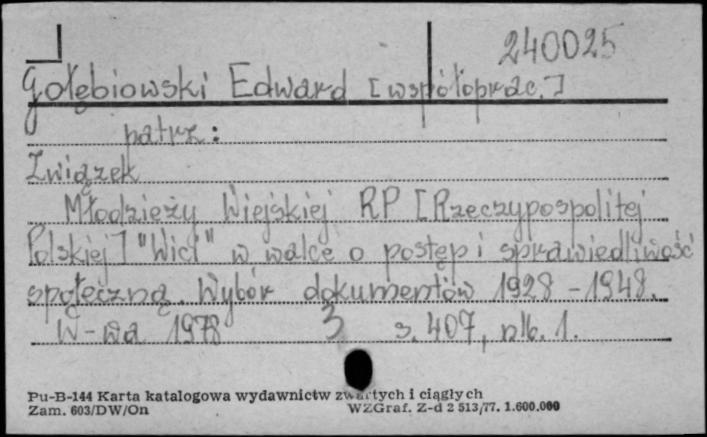 240025
Gołębiowski Edward [współoprac.]
patrz:
Związek
Młodzieży Wiejskiej RP [Rzeczypospolitej
Polskiej] "Wici" w walce o postęp i sprawiedliwość
społeczną. Wybór dokumentów 1928-1948.
W-wa 1978 3 s. 407, nlb. 1.
Pu-B-144 Karta katalogowa wydawnictw zwartych i ciągłych
Zam. 603/DW/On WZGraf. Z-d 2 513/77. 1.600.000